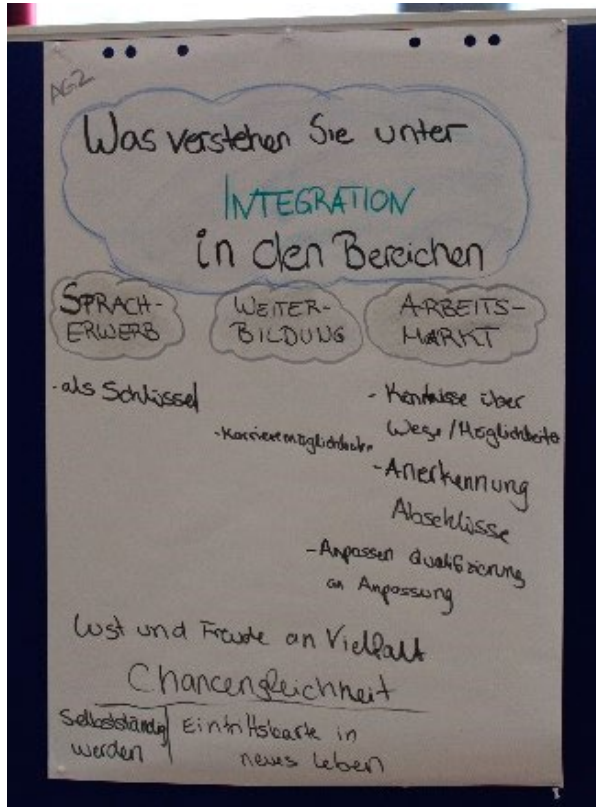 AG2
Was verstehen Sie unter
INTEGRATION
in den Bereichen
SPRACH-
ERWERB
WEITER-
BILDUNG
ARBEITS-
MARKT
- als Schlüssel
- Karrieremöglichkeiten
- Kenntnisse über
Wege / Möglichkeiten
- Anerkennung
Abschlüsse
- Anpassen Qualifizierung
an Anpassung
Lust und Freude an Vielfalt
Chancengleichheit
Selbstständig
werden
Eintrittskarte in
neues Leben